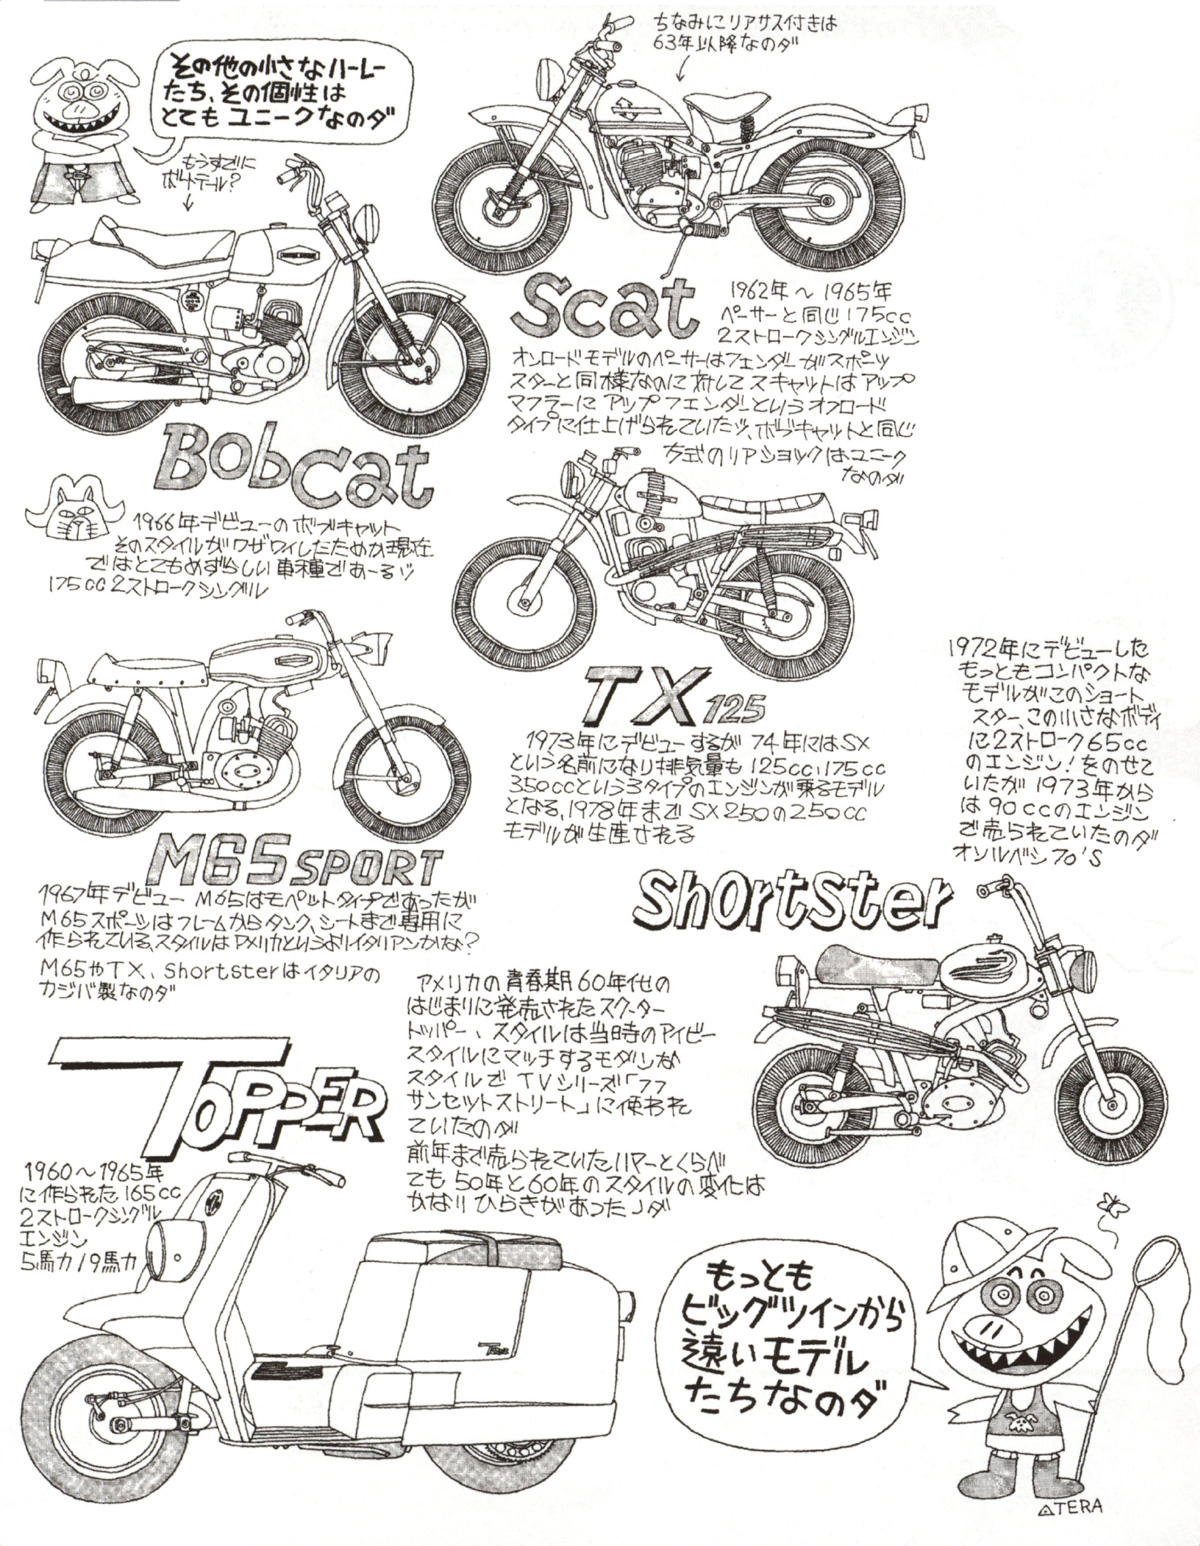 その他の小さなハーレー
たち、その個性は
とてもユニークなのダ
もうすでに
ボートテール?
ちなみにリアサス付きは
63年以降なのダ
Scat
1962年～1965年
ペーサーと同じ175cc
2ストロークシングルエンジン
オンロードモデルのペーサーはフェンダーがスポーツ
スターと同様なのに対してスキャットはアップ
マフラーにアップフェンダーというオフロード
タイプに仕上げられていたッ、ボブキャットと同じ
方式のリアショックはユニーク
なのダ
Bobcat
1966年デビューのボブキャット
そのスタイルがワザワイしたためか現在
ではとてもめずらしい車種であーるッ
175cc2ストロークシングル
TX125
1973年にデビューするが74年にはSX
という名前になり排気量も125cc、175cc
350ccという3タイプのエンジンが乗るモデル
となる、1978年までSX250の250cc
モデルが生産される
M65SPORT
1967年デビュー M65はモペットタイプであったが
M65スポーツはフレームからタンク、シートまで専用に
作られている、スタイルはアメリカというよりイタリアンかな?
M65やTX、Shortsterはイタリアの
カジバ製なのダ
1972年にデビューした
もっともコンパクトな
モデルがこのショート
スター、この小さなボディ
に2ストローク65cc
のエンジン!をのせて
いたが1973年から
は90ccのエンジン
で売られていたのダ
オソルベシ70'S
Shortster
TOPPER
1960～1965年
に作られた165cc
2ストロークシングル
エンジン
5馬力/9馬力
アメリカの青春期60年代の
はじまりに発売されたスクーター
トッパー、スタイルは当時のアイビー
スタイルにマッチするモダンな
スタイルでTVシリーズ「77
サンセットストリート」に使われ
ていたのダ
前年まで売られていたハマーとくらべ
ても50年と60年のスタイルの変化は
かなりひらきがあったノダ
もっとも
ビッグツインから
遠いモデル
たちなのダ
TERA